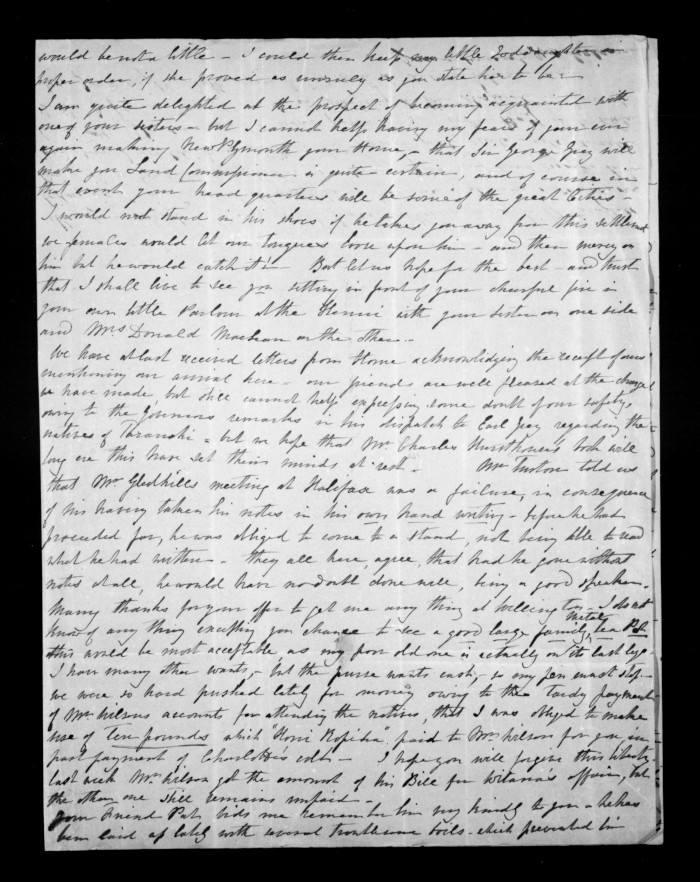 would be not a little - I could then keep my little Goddaughter in
proper order, if she proved as unruly as you state her to be -
I am quite delighted at the prospect of becoming acquainted with
one of your sisters - but I cannot help having my fears of your ever
again making New Plymouth your Home, - that Sir George Grey will
make you Land Commissioner is quite certain, and of course in
that event your head quarters will be some of the great Cities -
I would not stand in his shoes if he takes you away from this settlement
we females would let our tongues loose upon him - and then mercy on
him but he would catch it! - But let us hope for the best - and trust
that I shall live to see you sitting in front of your cheerful fire in
your own little Parlour at the Henui with your sister on one side
and Mrs Donald MacLean on the other. -
We have at last received letters from Home acknowledging the receipt of ours
mentioning our arrival here - our friends are well pleased at the change
we have made, but still cannot help expressing some doubt of our safety,
owing to the Governors remarks in his dispatch to Earl Grey regarding the
natives of Taranaki - but we hope that Mr Charles Hursthouse's book will
long ere this have set their minds at rest. - Mr Turton told us
that Mr Gledhills meeting at Halifax was a failure, in consequence
of his having taken his notes in his own hand writing - before he had
proceeded far, he was obliged to come to a stand, not being able to read
what he had written - they all here, agree, that had he gone without
notes at all, he would have no doubt done well, being a good speaker.
Many thanks for your offer to get me any thing at Wellington - I do not
know of any thing excepting you chance to see a good large family, metal tea Pot
this would be most acceptable as my poor old one is actually on its last legs
I have many other wants, - but the purse wants cash, so my pen must stop -
we were so hard pushed lately for money owing to the tardy payment
of Mr Wilsons accounts for attending the natives, that I was obliged to make
use of ten pounds which "Honi Ropiha" paid to Mr Wilson for you in
part payment of Charlotte's colt - I hope you will forgive this liberty -
last week Mr Wilson got the amount of his Bill for Witana's affair, but
the other one still remains unpaid -
Your Friend Pat bids me remember him very kindly to you - he has
been laid up lately with several troublesome boils - which prevented him